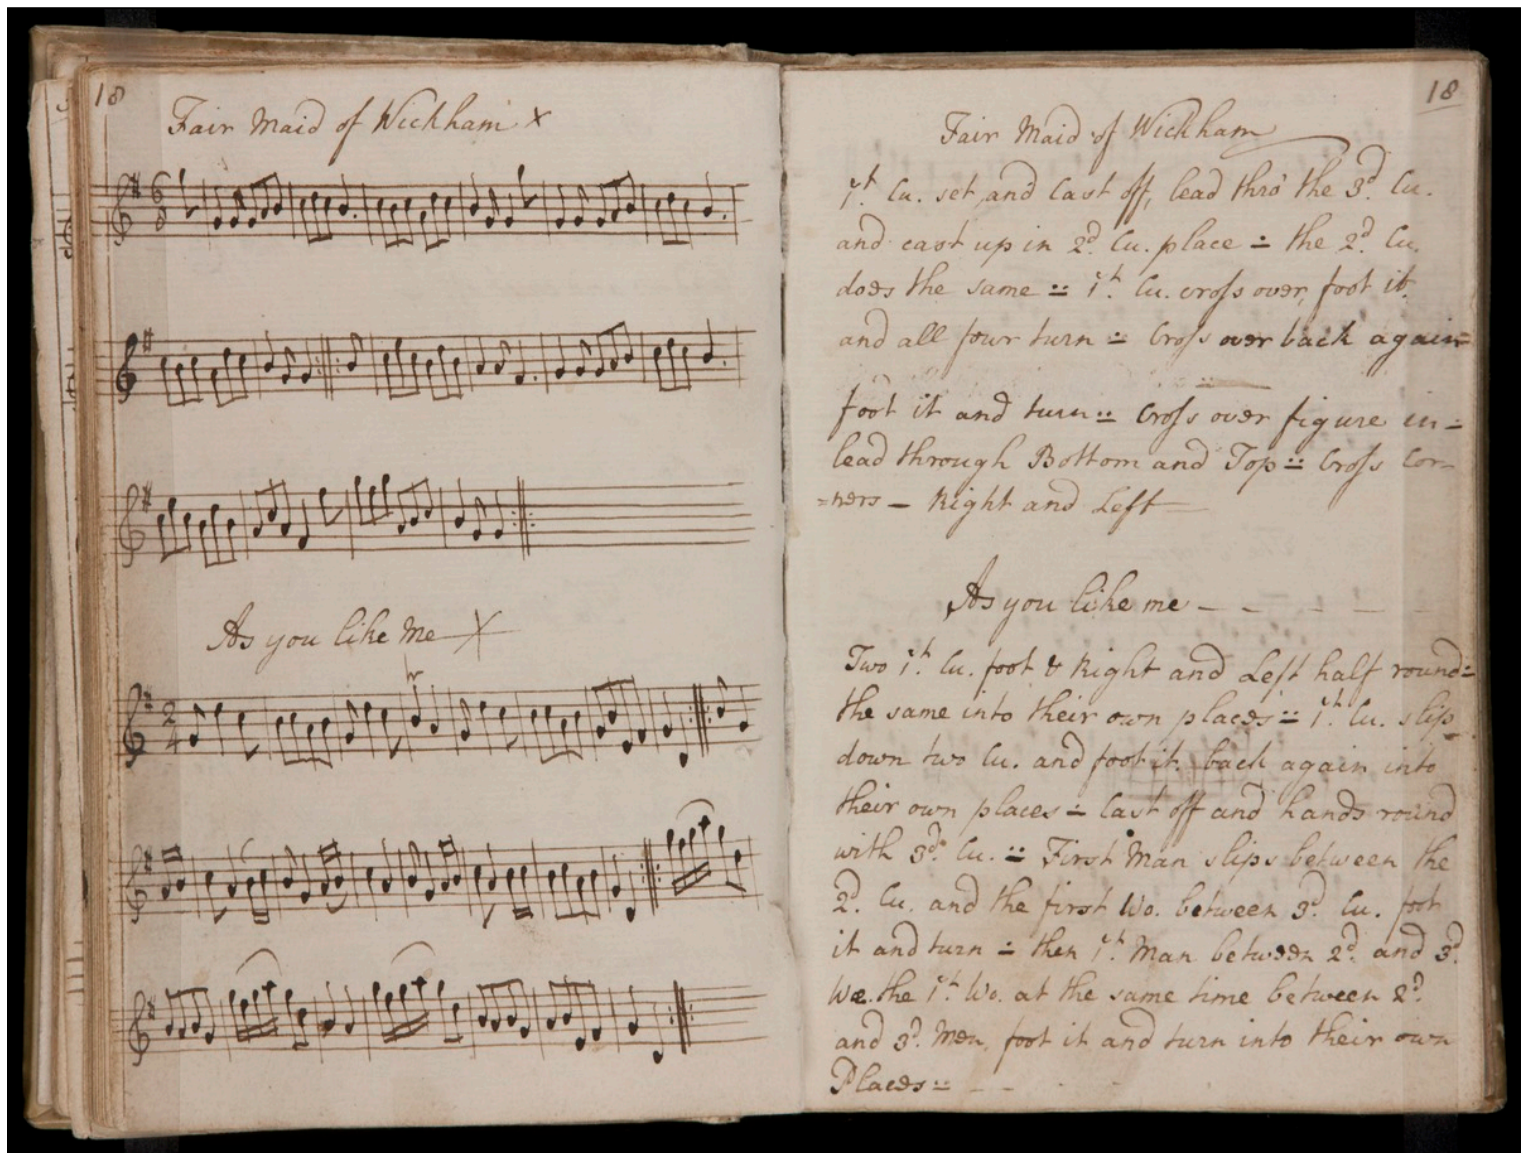 18
Fair Maid of Wickham x
6
8
As you like Me X
2
4
18
Fair Maid of Wickham
1.st Cu. set and Cast off, lead thro' the 3.d Cu.
and cast up in 2.d Cu. place ÷ the 2.d Cu.
does the same :: 1.st Cu. cross over, foot it
and all four turn ÷ Cross over back again=
foot it and turn :: Cross over figure in=
lead through Bottom and Top :: Cross Cor-
=ners – Right and Left
As you like me
Two 1.st Cu. foot & Right and Left half round=
the same into their own places :: 1.st Cu. slip
down two Cu. and foot it back again into
their own places ÷ Cast off and hands round
with 3.d Cu. :: First Man slips between the
2.d Cu. and the first Wo. between 3.d Cu. foot
it and turn ÷ then 1.st Man between 2.d and 3.d
We. the 1.st Wo. at the same time between 2.d
and 3.d Men foot it and turn into their own
Places ::